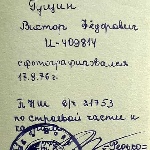 Гущин
Виктор Фёдорович
И-409814
сфотографировался
17.9.76 г.
ПНШ в/ч 21753
по строевой части и